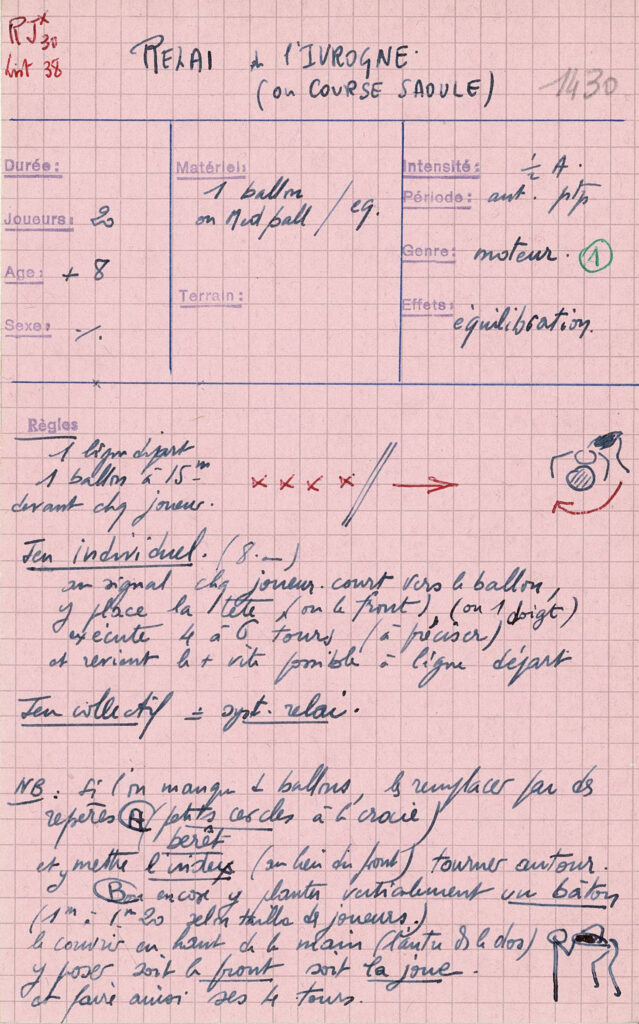 RJx 30
List 38
RELAI de l'IVROGNE.
(ou COURSE SAOULE)
1430
Durée:
Joueurs: 20
Age: + 8
Sexe:
Matériel:
1 ballon
ou Med ball / eq.
Terrain:
Intensité: ½ A.
Période: aut. ptp
Genre: moteur. 1
Effets: équilibration.
Règles
1 ligne départ
1 ballon à 15 m
devant chq joueur.
Jeu individuel. (8 . —)
au signal chq joueur court vers le ballon,
y place la tête (ou le front), (ou 1 doigt)
exécute 4 à 6 tours (à préciser)
et revient le + vite possible à ligne départ
Jeu collectif = syst. relai.
NB: Si l'on manque de ballons, les remplacer par des
repères A (petits cercles à la craie)
berêt
et y mettre l'index (au lieu du front) tourner autour.
B encore y planter verticalement un bâton
(1m à 1m20 selon taille de joueurs.)
le couvrir en haut de la main (l'autre ds le dos)
y poser soit le front soit la joue.
et faire ainsi ses 4 tours.